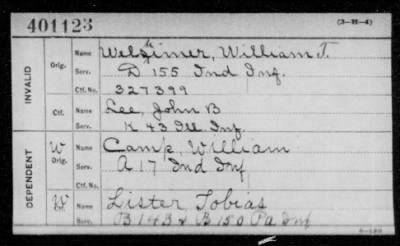 401123 (3-H-4)
INVALID
Orig. Name Welzimer, William T.
Serv. D 155 Ind Inf.
Ctf. No. 327399
Ctf. Name Lee, John B
Serv. K 43 Ill Inf
DEPENDENT
W Orig. Name Camp, William
Serv. A 17 Ind Inf
Ctf. No.
W Ctf. Name Lister Tobias
Serv. B 143 & B 150 Pa Inf